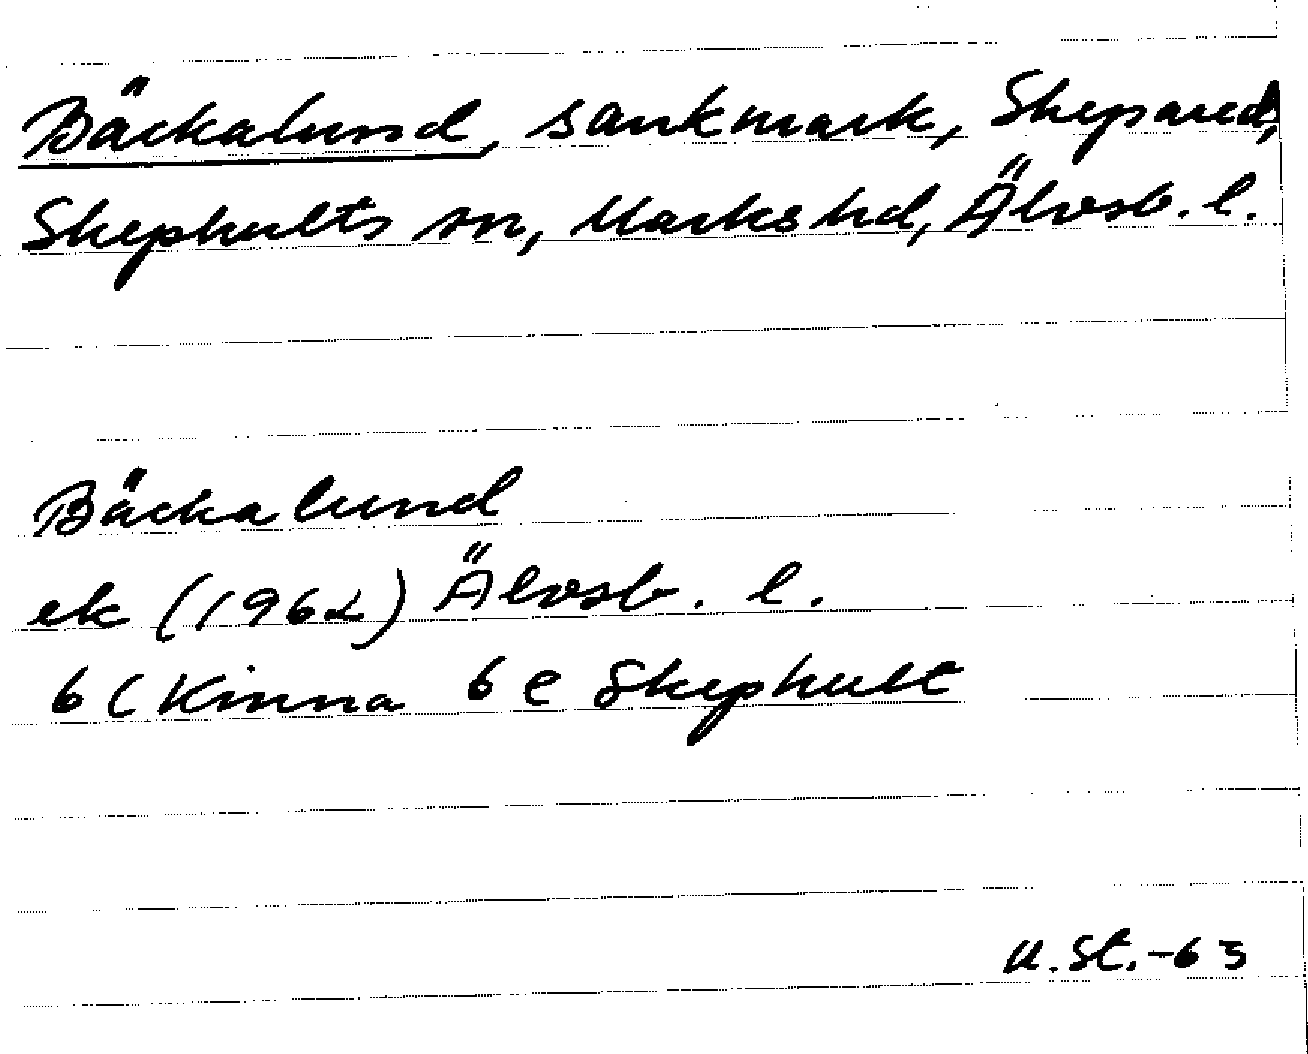 Bäckalund, sankmark, Skepared,
Skephults sn, Marks hd, Älvsb. l.
Bäckalund
ek (1962) Älvsb. l.
6 C Kinna 6 e Skephult
U.St.-63